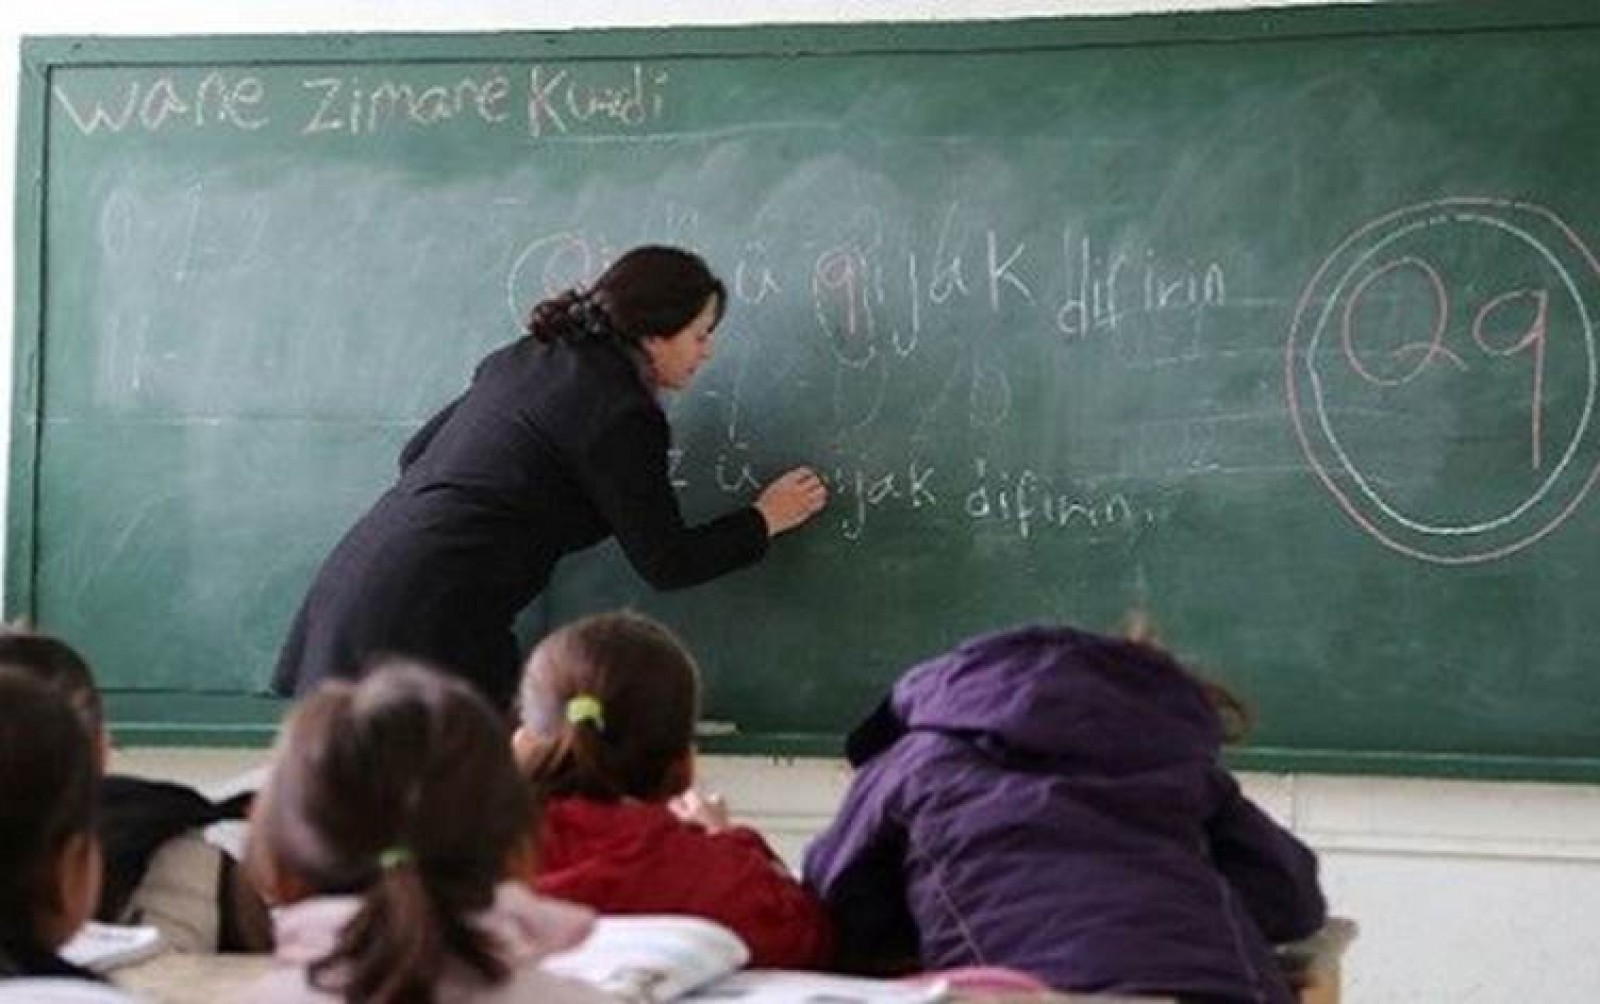 wane zimane Kurdi
ü qijak difirin
Qq
ü qijak difirin.